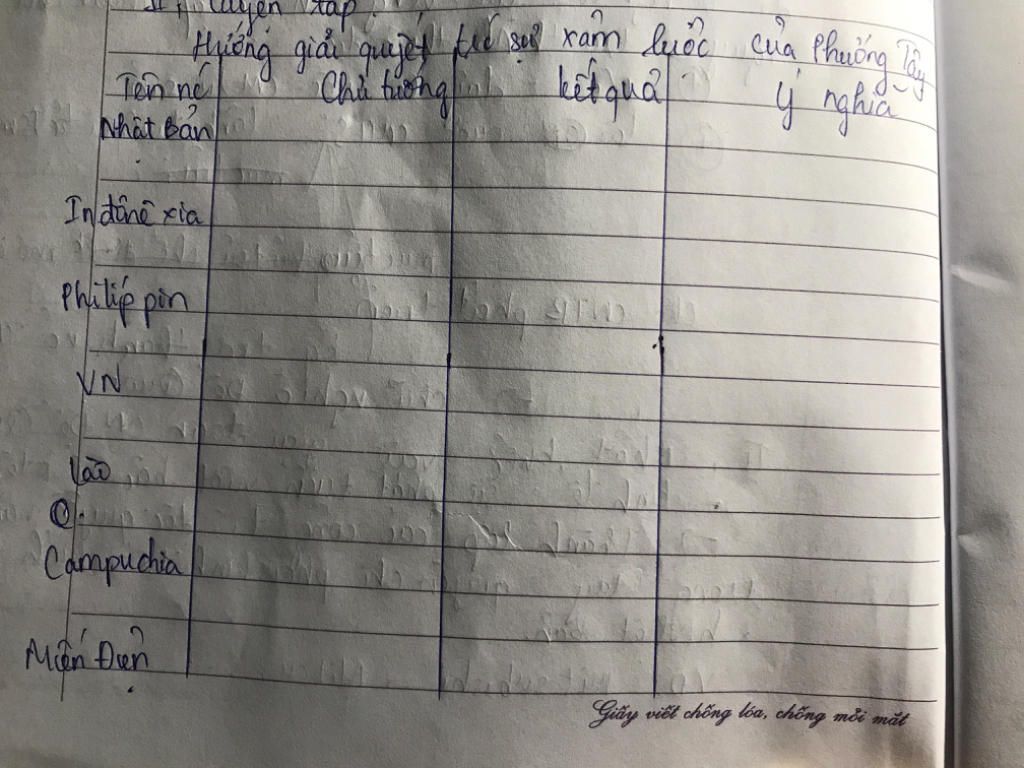 II, Luyện tập
Hướng giải quyết từ sự xâm lược của Phương Tây
Tên nc Chủ tương kết quả Ý nghĩa
Nhật Bản
In đônê xia
Philíp pin
VN
Lào
Campuchia
Miến Điện
Giấy viết chống lóa, chống mỏi mắt